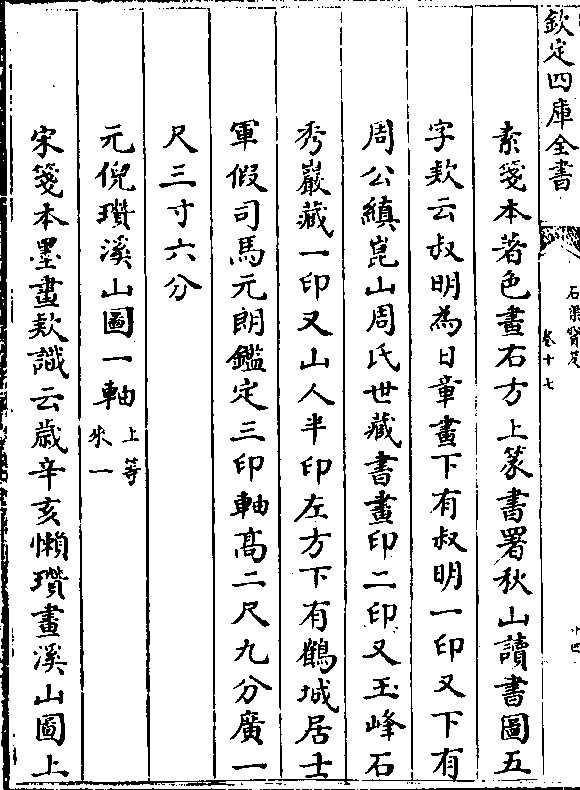 欽定四庫全書
石渠寳笈
卷十七
十四
素箋本著色畫右方上篆書署秋山讀書圖五
字欵云叔明為日章畫下有叔明一印又下有
周公縝崑山周氏世藏書畫印二印又玉峰石
秀巖藏一印又山人半印左方下有鶴城居士
軍假司馬元朗鑑定三印軸髙二尺九分廣一
尺三寸六分
元倪瓚溪山圖一軸 上等
來一
宋箋本墨畫欵識云歲辛亥懶瓚畫溪山圖上